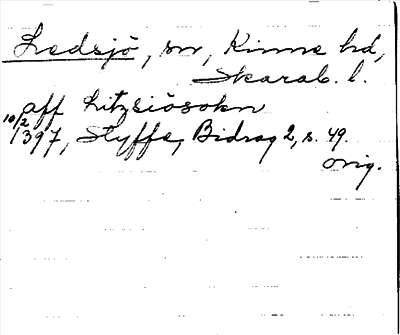 Ledsjö, sn, Kinne hd,
Skarab. l.
aff Litzsiösokn
10/2 1397, Styffe, Bidrag 2, s. 49.
orig.